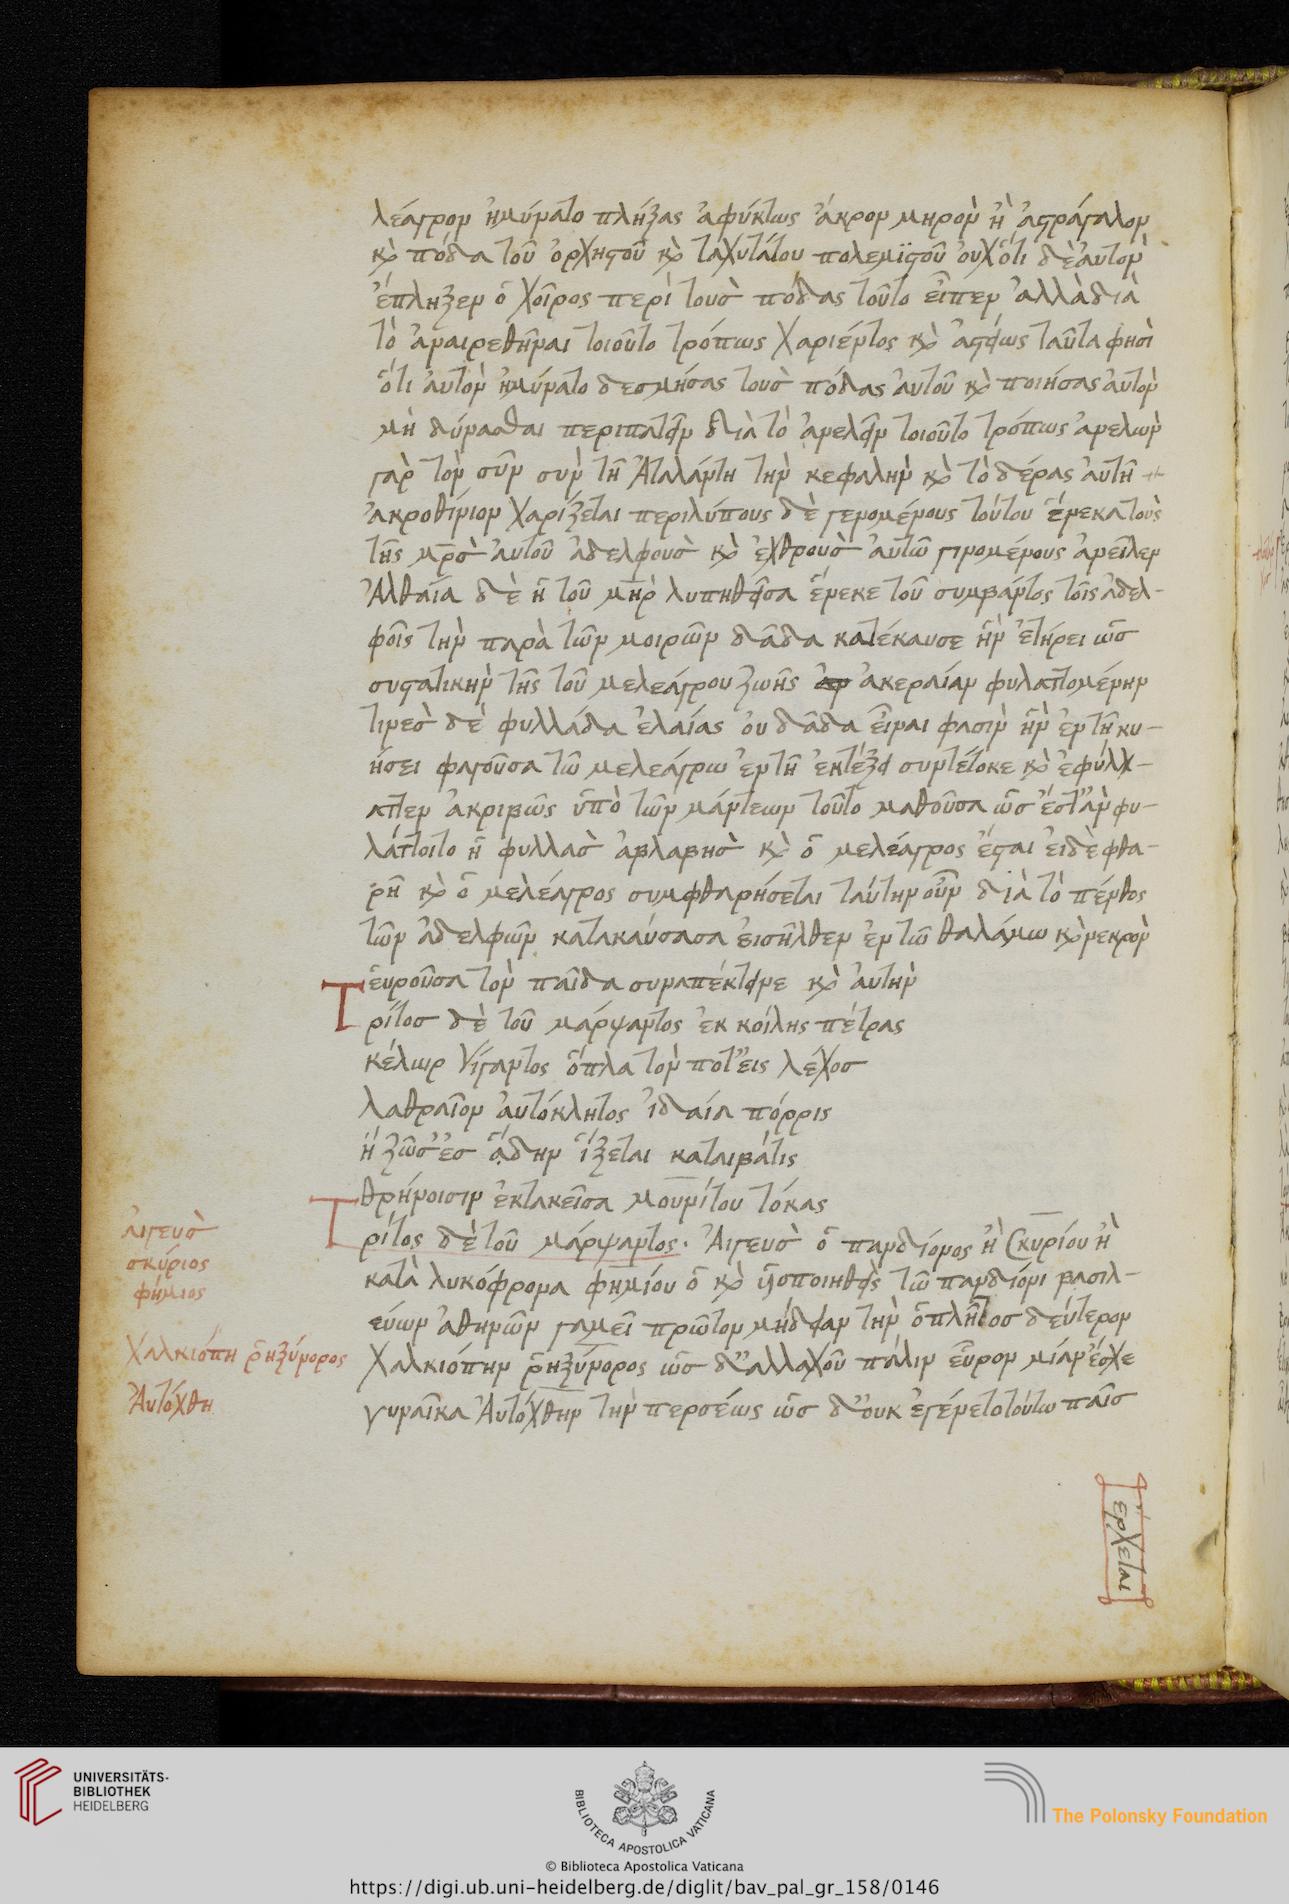 λέαγρον ἠμύνατο πλήξας ἀφύκτως ἄκρον μηρὸν ἢ ἀστράγαλον
κὰι πόδα τοῦ ὀρχηστοῦ κὰι ταχυτάτου πολεμϊστοῦ ὀυχ ὅτι δὲ ἀυτὸν
ἔπληξεν ὁ χοῖρος περὶ τουσ πόδας τοῦτο εἶπεν ἀλλὰ διὰ
τὸ ἀναιρεθῆναι τοιοῦτο τρόπως χαριέντος κὰι ἀστείως ταῦτα φησὶ
ὅτι ἀυτὸν ἠμύνατο δεσμήσας τουσ πόδας ἀυτοῦ κὰι ποιήσας ἀυτὸν
μὴ δύνασθαι περιπατεῖν διὰ τὸ ἀνελεῖν τοιοῦτο τρόπως ἀνελὼν
γὰρ τὸν σῦν σὺν τῆ Ἀταλάντη τὴν κεφαλὴν κὰι τὸ δέρας ἀυτῆ
ἀκροθίνιον χαρίζεται περιλύπους δὲ γενομένους τούτου ἕνεκα τοὺς
τῆς μρ̅ὸσ ἀυτοῦ ἀδελφουσ κὰι ἐχθρουσ ἀυτῶ γινομένους ἀνεῖλεν
Ἀλθαία δὲ ἡ τοῦ μη̅ρ λυπηθεῖσα ἕνεκε τοῦ συμβάντος τοῖς ἀδελ-
φοῖς τὴν παρὰ τῶν μοιρῶν δᾶδα κατέκαυσε ἣν ἐτήρει ὡσ
συστατικὴν τῆς τοῦ μελεάγρου ζωῆς ἀκεραίαν φυλαττομένην
τινεσ δὲ φυλλάδα ἐλαίας ὀυ δᾶδα εἶναι φασὶν ἣν ἐν τῆ κυ-
ήσει φαγοῦσα τῶ μελεάγρω ἐν τῆ ἐκτέξει συντέτοκε κὰι ἐφύλ-
αττεν ἀκριβῶς ὑπὸ τῶν μάντεων τοῦτο μαθοῦσα ὡσ ἔστ' ἂν φυ-
λάττοιτο ἡ φυλλασ ἀβλαβησ κὰι ὁ μελέαγρος ἔσται ἐι δὲ φθα-
ρῆ κὰι ὁ μελέαγρος συμφθαρήσεται ταύτην οὖν διὰ τὸ πένθος
τῶν ἀδελφῶν κατακαύσασα ἐισῆλθεν ἐν τῶ θαλάμω κὰι νεκρὸν
ἑυροῦσα τὸν παῖδα συναπέκτεινε κὰι ἀυτὴν
Τρίτοσ δὲ τοῦ μάρψαντος ἐκ κοίλης πέτρας
κέλωρ γίγαντος ὅπλα τὸν ποτ' ἐις λέχοσ
λαθραῖον ἀυτόκλητος ἰδαία πόρρις
ἡ ζῶσ' ἐσ ἅδην ἵξεται καταιβάτις
θρήνοισιν ἐκτακεῖσα μουνίτου τόκας
Τρίτος δὲ τοῦ μάρψαντος. Ἀιγευσ ὁ πανδιόνος ἢ Σκυρίου ἢ
κατὰ λυκόφρονα φημίου ὁ κὰι ὑσποιηθεὶς τῶ πανδίονι βασιλ-
εύων ἀθηνῶν γαμεῖ πρῶτον μήδειαν τὴν ὅπλητοσ δεύτερον
χαλκιόπην ῥηξήνορος ὡσ δ' ἀλλαχοῦ πάλιν εὗρον μίαν ἔσχε
γυναῖκα Ἀυτόχθην τὴν περσέως ὡσ δ' ὀυκ ἐγένετο τούτω παῖσ
Ἀιγευσ
σκύριος
φήμιος
Χαλκιόπη ῥηξήνορος
Ἀυτόχθη
ἔρχεται
UNIVERSITÄTS-
BIBLIOTHEK
HEIDELBERG
BIBLIOTECA APOSTOLICA VATICANA
The Polonsky Foundation
© Biblioteca Apostolica Vaticana
https://digi.ub.uni-heidelberg.de/diglit/bav_pal_gr_158/0146